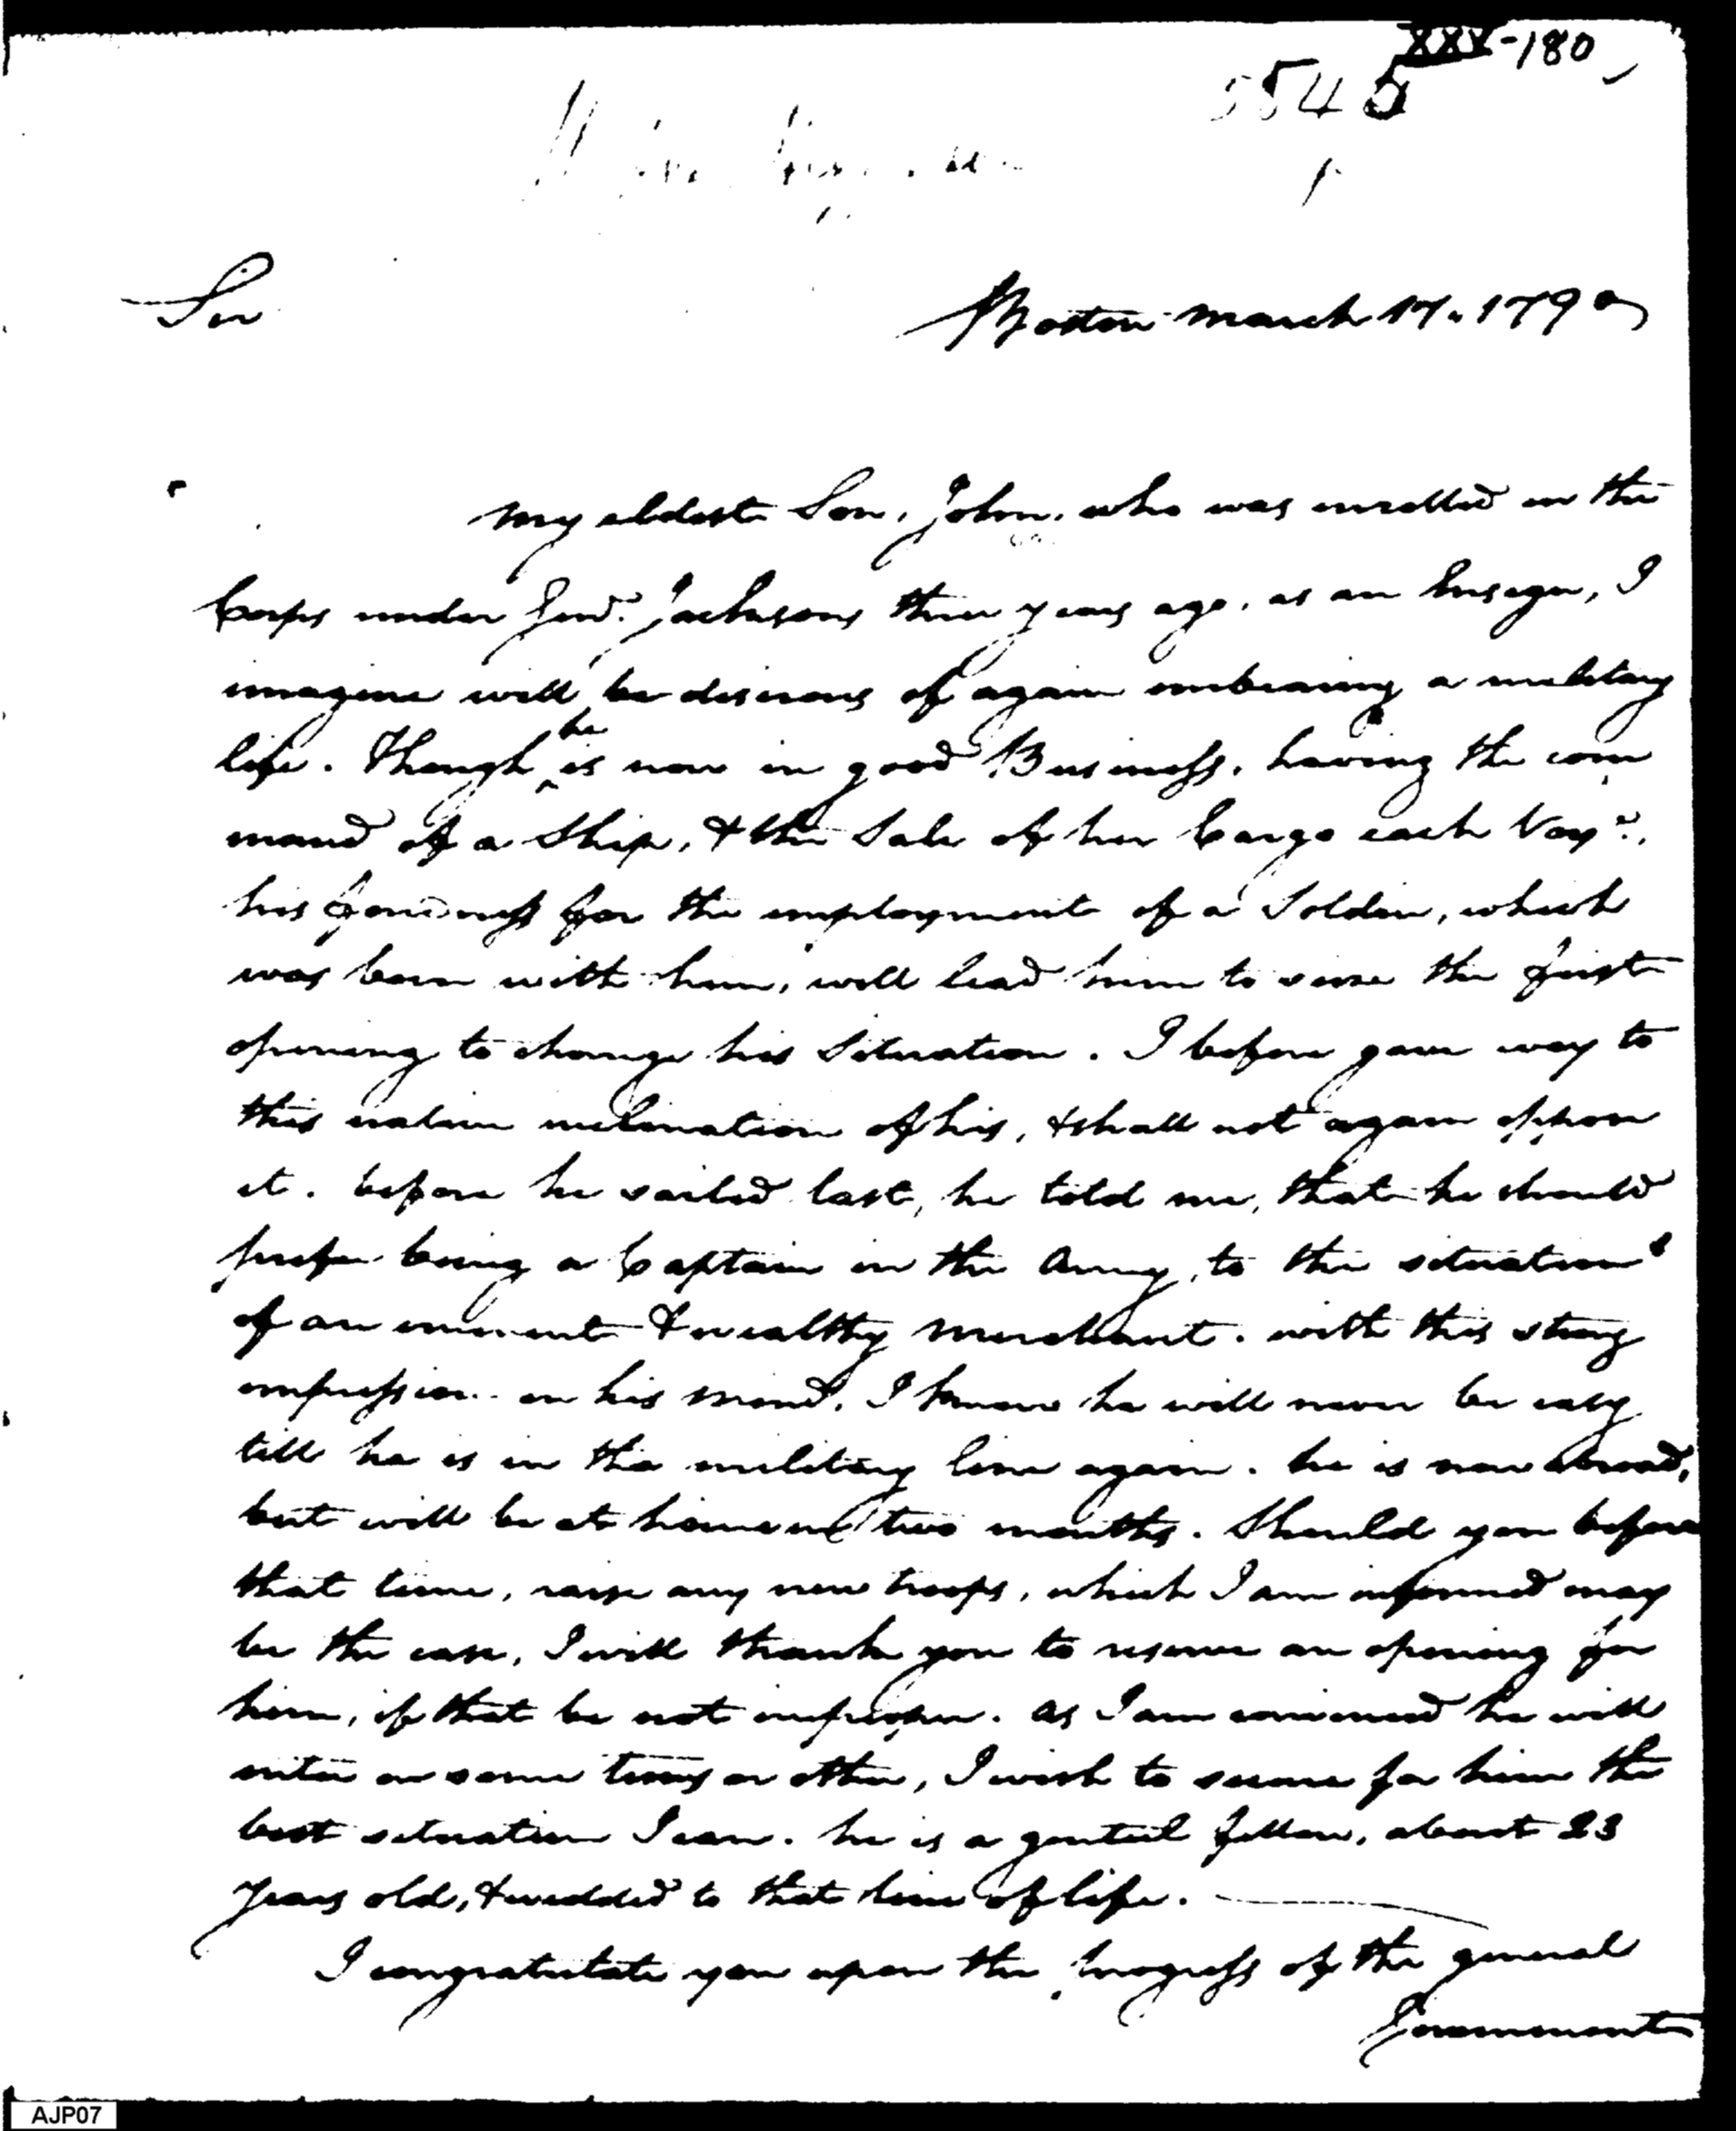 XXV-180
5545
Sir
Boston March 17. 1790
My eldest Son, John, who was inrolled in the
Corps under Genl. Jacksons three years ago, as an Insign, I
imagine will be desirous of again embracing a military
life. Though he is now in good Business, having the com
mand of a Ship, & the Sale of her Cargo each Voye.,
his fondness for the employment of a Soldier, which
was born with him, will lead him to seize the first
opening to change his Situation. I before gave way to
this native inclination of his, & shall not again oppose
it. before he sailed last, he told me, that he should
prefer being a Captain in the Army, to the situation
of an eminent & wealthy Merchant. with this strong
impression on his mind, I know he will never be easy
till he is in the military line again. he is now abroad,
but will be at home in two months. Should you before
that time, raise any new troops, which I am informed may
be the case, I will thank you to reserve an opening for
him, if that be not improper. as I am convinced he will
enter on some terms or other, I wish to secure for him the
best situation I can. he is a genteel fellow, about 23
years old, & wedded to that line of life.
I congratulate you upon the progress of the general
Government
AJP07